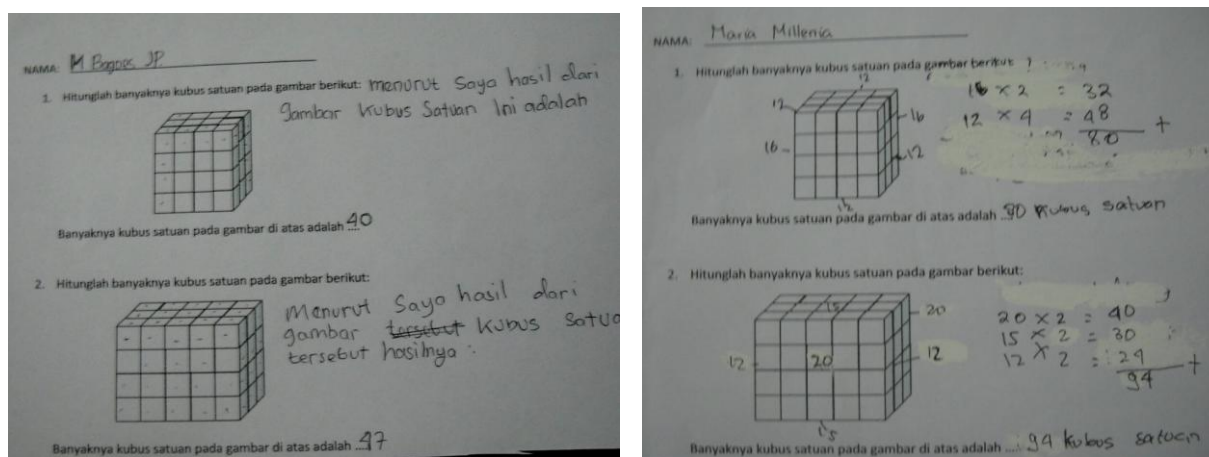 NAMA: M Bagoes JP
1. Hitunglah banyaknya kubus satuan pada gambar berikut: menurut Saya hasil dari
gambar Kubus Satuan Ini adalah
Banyaknya kubus satuan pada gambar di atas adalah 40
2. Hitunglah banyaknya kubus satuan pada gambar berikut:
Menurut Saya hasil dari
gambar tersebut Kubus Satua
tersebut hasilnya :
Banyaknya kubus satuan pada gambar di atas adalah ...47
NAMA: Maria Millenia
1. Hitunglah banyaknya kubus satuan pada gambar berikut ?
12
12
16
16
12
12
16 x 2 = 32
12 x 4 = 48
80 +
Banyaknya kubus satuan pada gambar di atas adalah ..80 Kubus satuan
2. Hitunglah banyaknya kubus satuan pada gambar berikut:
15
20
12
20
12
15
20 x 2 = 40
15 x 2 = 30
12 x 2 = 24
94 +
Banyaknya kubus satuan pada gambar di atas adalah ....94 Kubus satuan